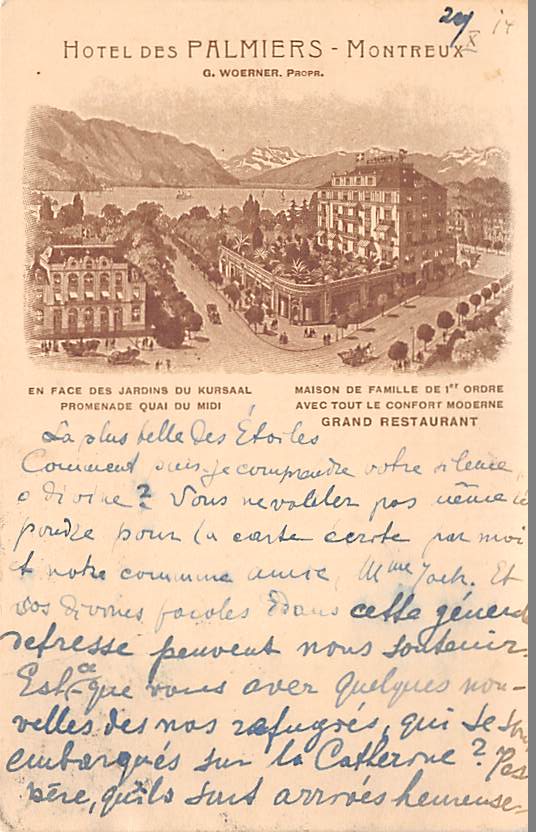 29/X 14
HOTEL DES PALMIERS - MONTREUX
G. WOERNER. PROPR.
EN FACE DES JARDINS DU KURSAAL
PROMENADE QUAI DU MIDI
MAISON DE FAMILLE DE 1er ORDRE
AVEC TOUT LE CONFORT MODERNE
GRAND RESTAURANT
La plus belle des Étoiles
Comment puis-je comprendre votre silence,
o divine? Vous ne pas même
pour la carte écrite par moi
et notre commune amie, Mme. Et
vos divines dans cette
detresse peuvent nous soutenir.
Est-ce que vous avez quelques nou-
velles des nos refugiés, qui se sont
embarqués sur la Catherine?
qu'ils sont arrivés heureuse-